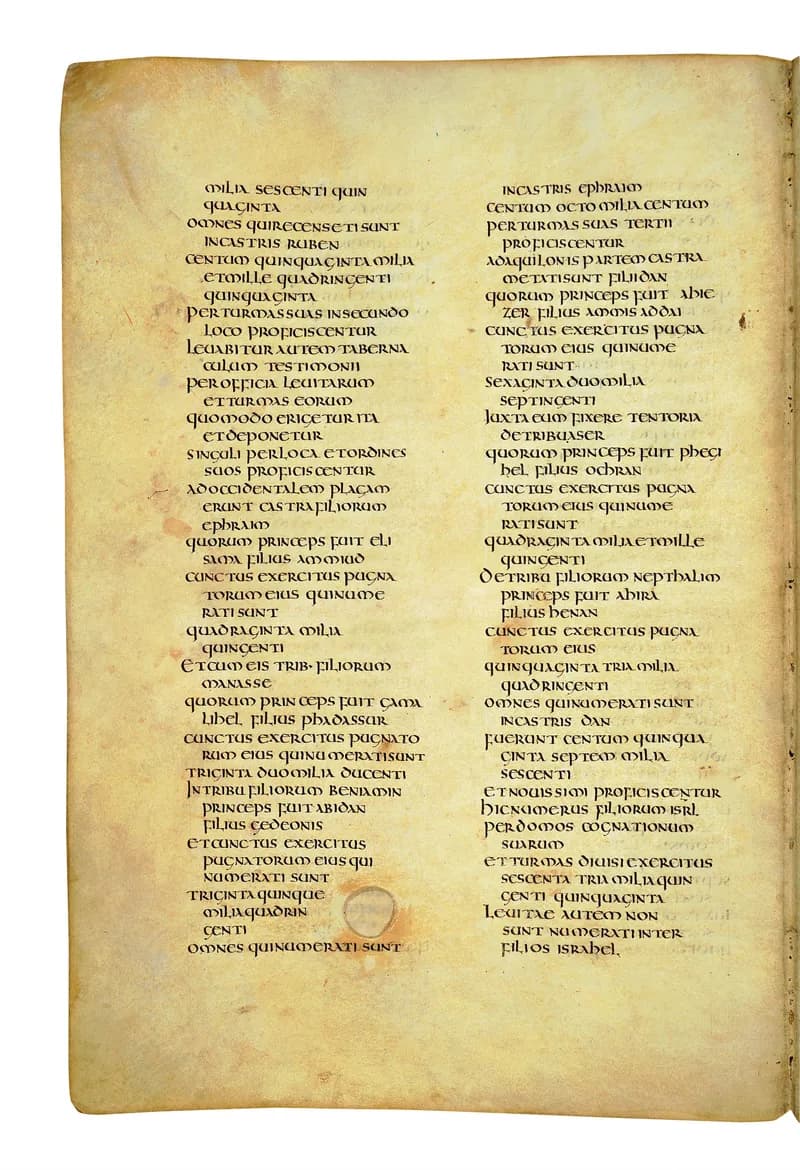 milia sescenti quin
quaginta
omnes quirecensetisunt
incastris ruben
centum quinquagintamilia
etmille quadringenti
quinquaginta
perturmassuas insecundo
loco proficiscentur
leuabiturautemtaberna
culum testimonii
perofficia leuitarum
etturmas eorum
quomodo erigeturita
etdeponetur
singuli perloca etordines
suos proficiscentur
adoccidentalem plagam
erunt castrafiliorum
ephraim
quorum princeps fuit eli
sama filius ammiud
cunctus exercitus pugna
torum eius quinume
rati sunt
quadraginta milia
quingenti
etcum eis trib· filiorum
manasse
quorum princeps fuit gama
lihel filius phadassur
cunctus exercitus pugnato
rum eius quinumeratisunt
triginta duomilia ducenti
Intribufiliorum beniamin
princeps fuit abidan
filius gedeonis
etcunctus exercitus
pugnatorum eiusqui
numerati sunt
triginta quinque
miliaquadrin
genti
omnes quinumerati sunt
incastris ephraim
centum octo milia centum
perturmas suas tertii
proficiscentur
adaquilonis partem castra
metatisunt filiidan
quorum princeps fuit ahie
zer filius ammisaddai
cunctus exercitus pugna
torum eius quinume
rati sunt
sexaginta duomilia
septingenti
Iuxta eum fixere tentoria
detribuaser
quorum princeps fuit phegi
hel filius ochran
cunctus exercitus pugna
torum eius quinume
ratisunt
quadraginta miliaetmille
quingenti
detribu filiorum nepthalim
princeps fuit ahira
filius henan
cunctus exercitus pugna
torum eius
quinquaginta triamilia
quadringenti
omnes quinumerati sunt
incastris dan
fuerunt centum quinqua
ginta septem milia
sescenti
etnouissimi proficiscentur
hicnumerus filiorum isrl
perdomos cognationum
suarum
etturmas diuisi exercitus
sescenta tria miliaquin
genti quinquaginta
leuitae autem non
sunt numerati inter
filios israhel